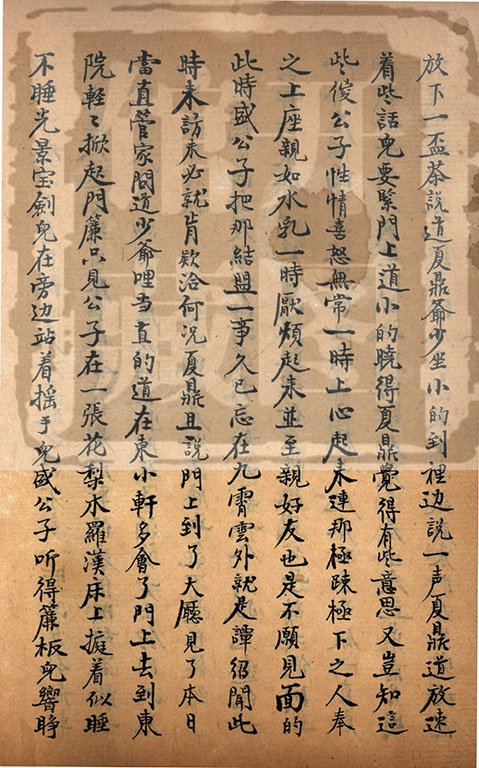 放下一盃茶說道夏鼎爺少坐小的到裡边說一声夏鼎道放速
着些話兒要緊門上道小的曉得夏鼎覺得有些意思又豈知這
些俊公子性情喜怒無常一時上心起来連那極疎極下之人奉
之上座親如水乳一時厭煩起来並至親好友也是不願見面的
此時盛公子把那結盟一事久已忘在九霄雲外就是譚紹聞此
時来訪未必就肯欵洽何況夏鼎且說門上到了大廳見了本日
當直管家問道少爺哩当直的道在東小軒多會了門上去到東
院軽〻掀起門簾只見公子在一張花梨木羅漢床上挺着似睡
不睡光景宝劍兒在旁边站着摇手兒盛公子听得簾板兒響睜